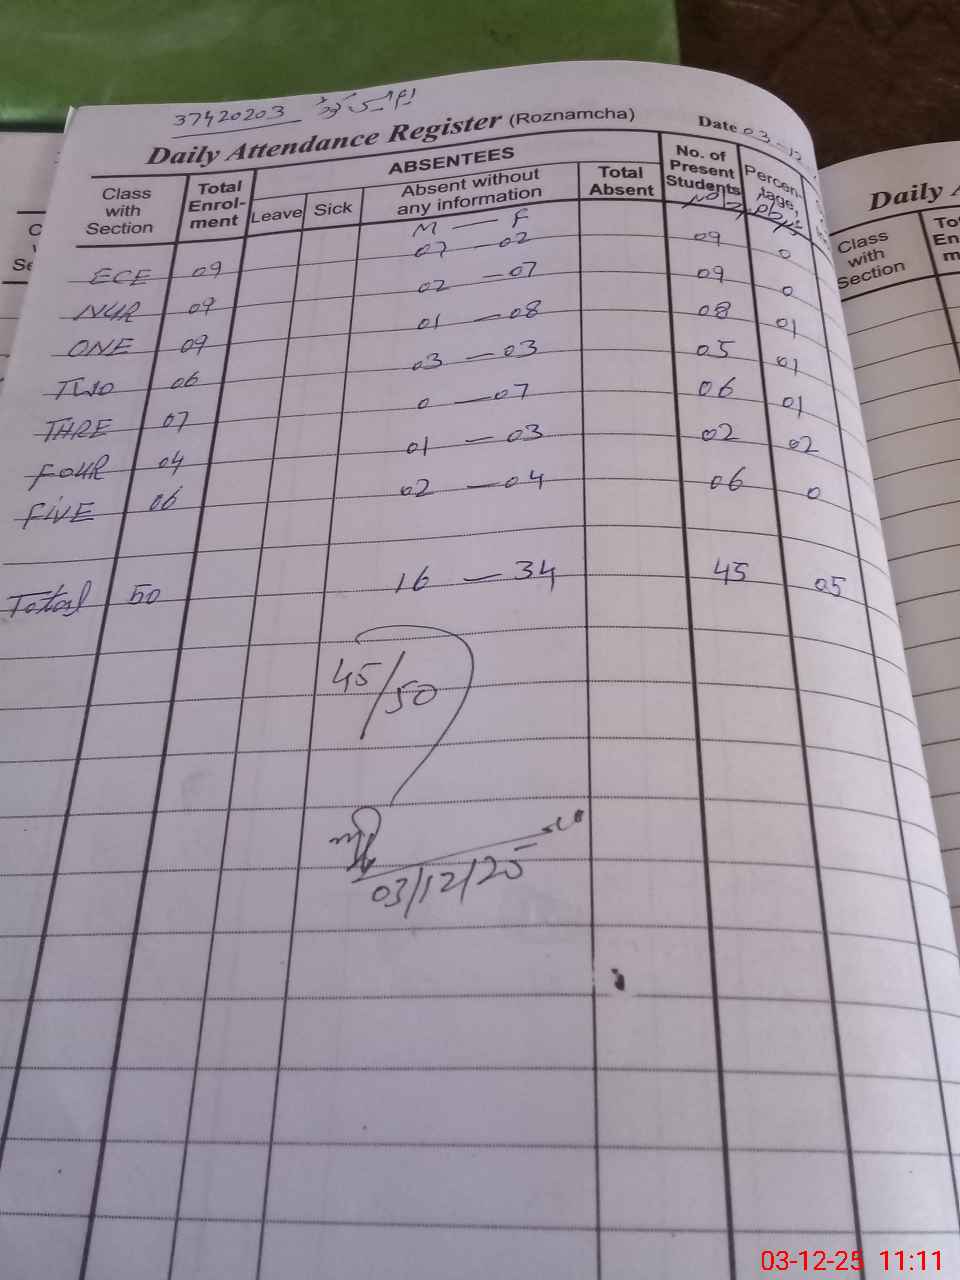 37420203 ایم ایس کوڈ
Daily Attendance Register (Roznamcha) Date 03-12
Class with Section Total Enrol-ment ABSENTEES No. of Present Students Percen-tage,
Leave Sick Absent without any information Total Absent
M — F
ECE 09 07 — 02 09 0
NUR 09 02 — 07 09 0
ONE 09 01 — 08 08 01
TWO 06 03 — 03 05 01
THRE 07 0 — 07 06 01
FOUR 04 01 — 03 02 02
FIVE 06 02 — 04 06 0
Total 50 16 — 34 45 05
45/50
03/12/25
Daily
Class with Section
03-12-25 11:11